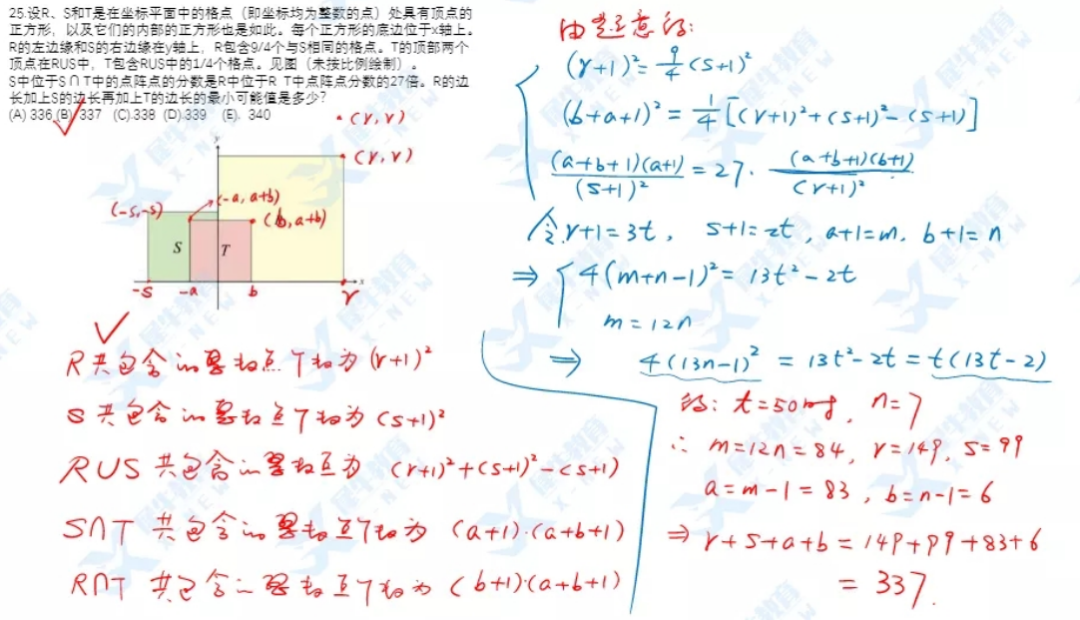 25.设R、S和T是在坐标平面中的格点（即坐标均为整数的点）处具有顶点的
正方形，以及它们的内部的正方形也是如此。每个正方形的底边位于x轴上。
R的左边缘和S的右边缘在y轴上，R包含9/4个与S相同的格点。T的顶部两个
顶点在RUS中，T包含RUS中的1/4个格点。见图（未按比例绘制）。
S中位于S∩T中的点阵点的分数是R中位于R T中点阵点分数的27倍。R的边
长加上S的边长再加上T的边长的最小可能值是多少?
(A) 336 (B) 337 (C).338 (D).339 (E). 340
(r,r)
y
(r,r)
(-s,-s)
(-a, a+b)
(b,a+b)
S
T
x
-s
-a
b
r
R共包含的整数点个数为(r+1)²
S共包含的整数点个数为(s+1)²
RUS共包含的整数点为 (r+1)²+(s+1)²-(s+1)
S∩T共包含的整数点个数为 (a+1)·(a+b+1)
R∩T共包含的整数点个数为 (b+1)·(a+b+1)
由题意得:
(r+1)²=9/4(s+1)²
(b+a+1)²=1/4[(r+1)²+(s+1)²-(s+1)]
(a+b+1)(a+1)/(s+1)²=27·(a+b+1)(b+1)/(r+1)²
令r+1=3t, s+1=2t, a+1=m, b+1=n
⇒ 4(m+n-1)²=13t²-2t
m=12n
⇒ 4(13n-1)²=13t²-2t=t(13t-2)
得: t=50时, n=7
∴ m=12n=84, r=149, s=99
a=m-1=83, b=n-1=6
⇒ r+s+a+b=149+99+83+6
=337.
犀牛教育
X-NEW